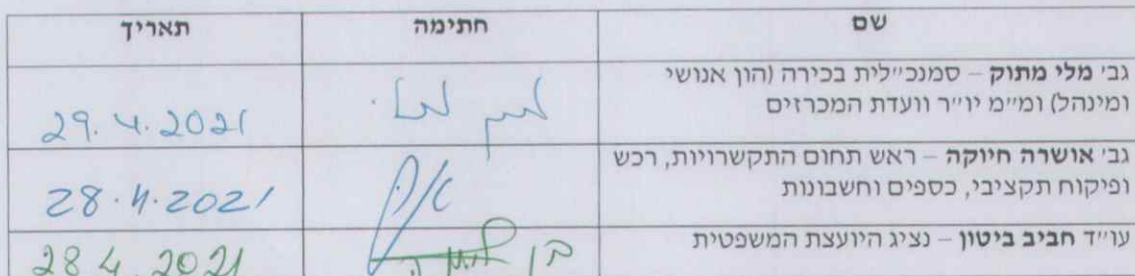 שם חתימה תאריך
גב' מלי מתוק – סמנכ"לית בכירה (הון אנושי
ומינהל) ומ"מ יו"ר וועדת המכרזים
29.4.2021
גב' אושרה חיוקה – ראש תחום התקשרויות, רכש
ופיקוח תקציבי, כספים וחשבונות
28.4.2021
עו"ד חביב ביטון – נציג היועצת המשפטית
28 4. 2021